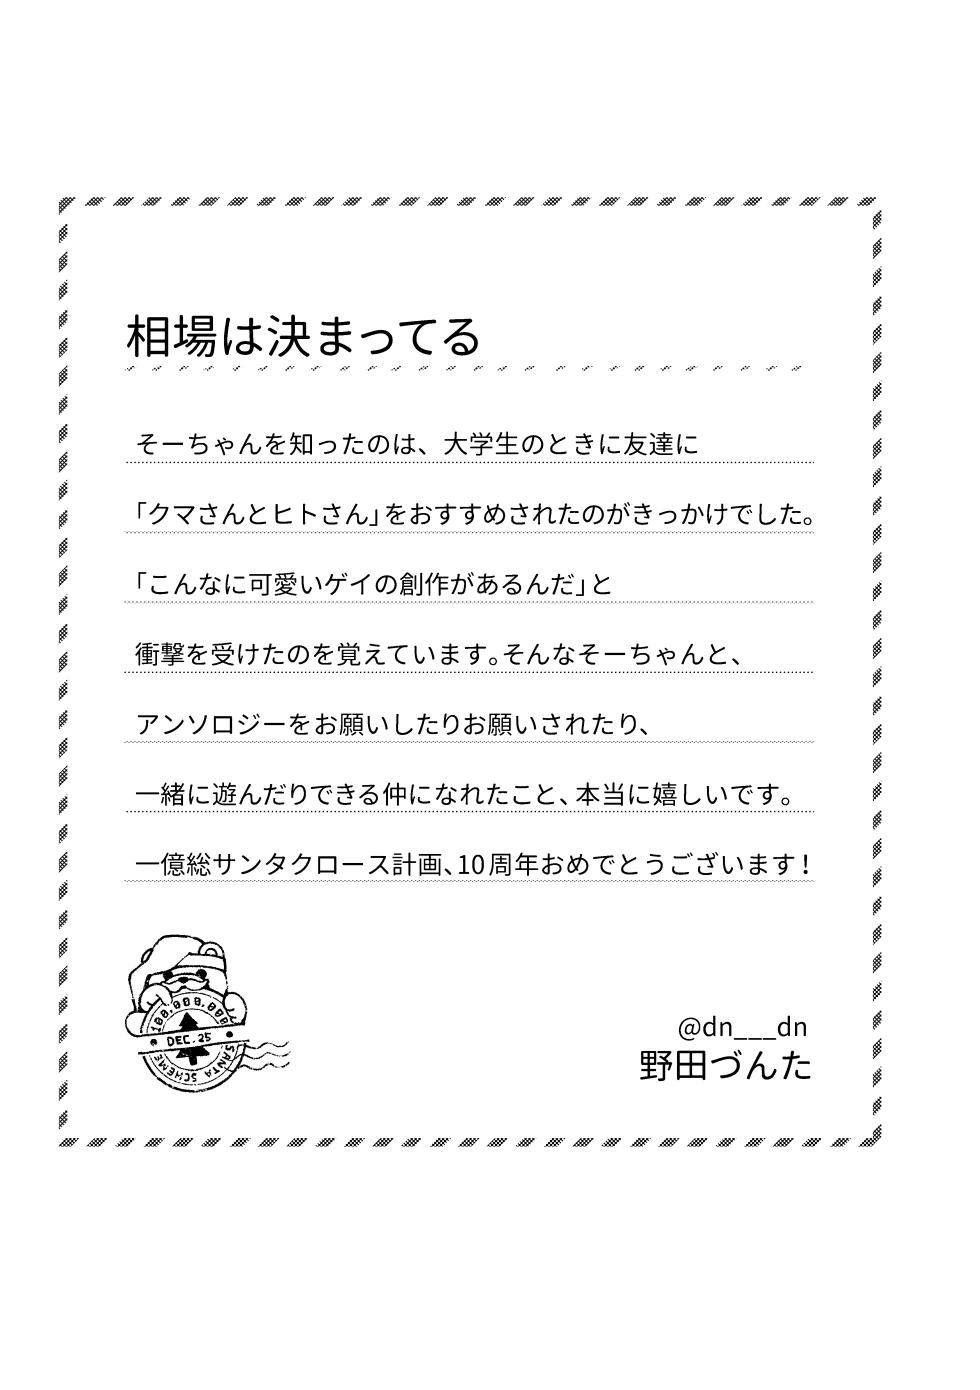 相場は決まってる
そーちゃんを知ったのは、大学生のときに友達に
「クマさんとヒトさん」をおすすめされたのがきっかけでした。
「こんなに可愛いゲイの創作があるんだ」と
衝撃を受けたのを覚えています。そんなそーちゃんと、
アンソロジーをお願いしたりお願いされたり、
一緒に遊んだりできる仲になれたこと、本当に嬉しいです。
一億総サンタクロース計画、10周年おめでとうございます！
100,000,000
DEC.25
SANTA SCHEME
@dn___dn
野田づんた